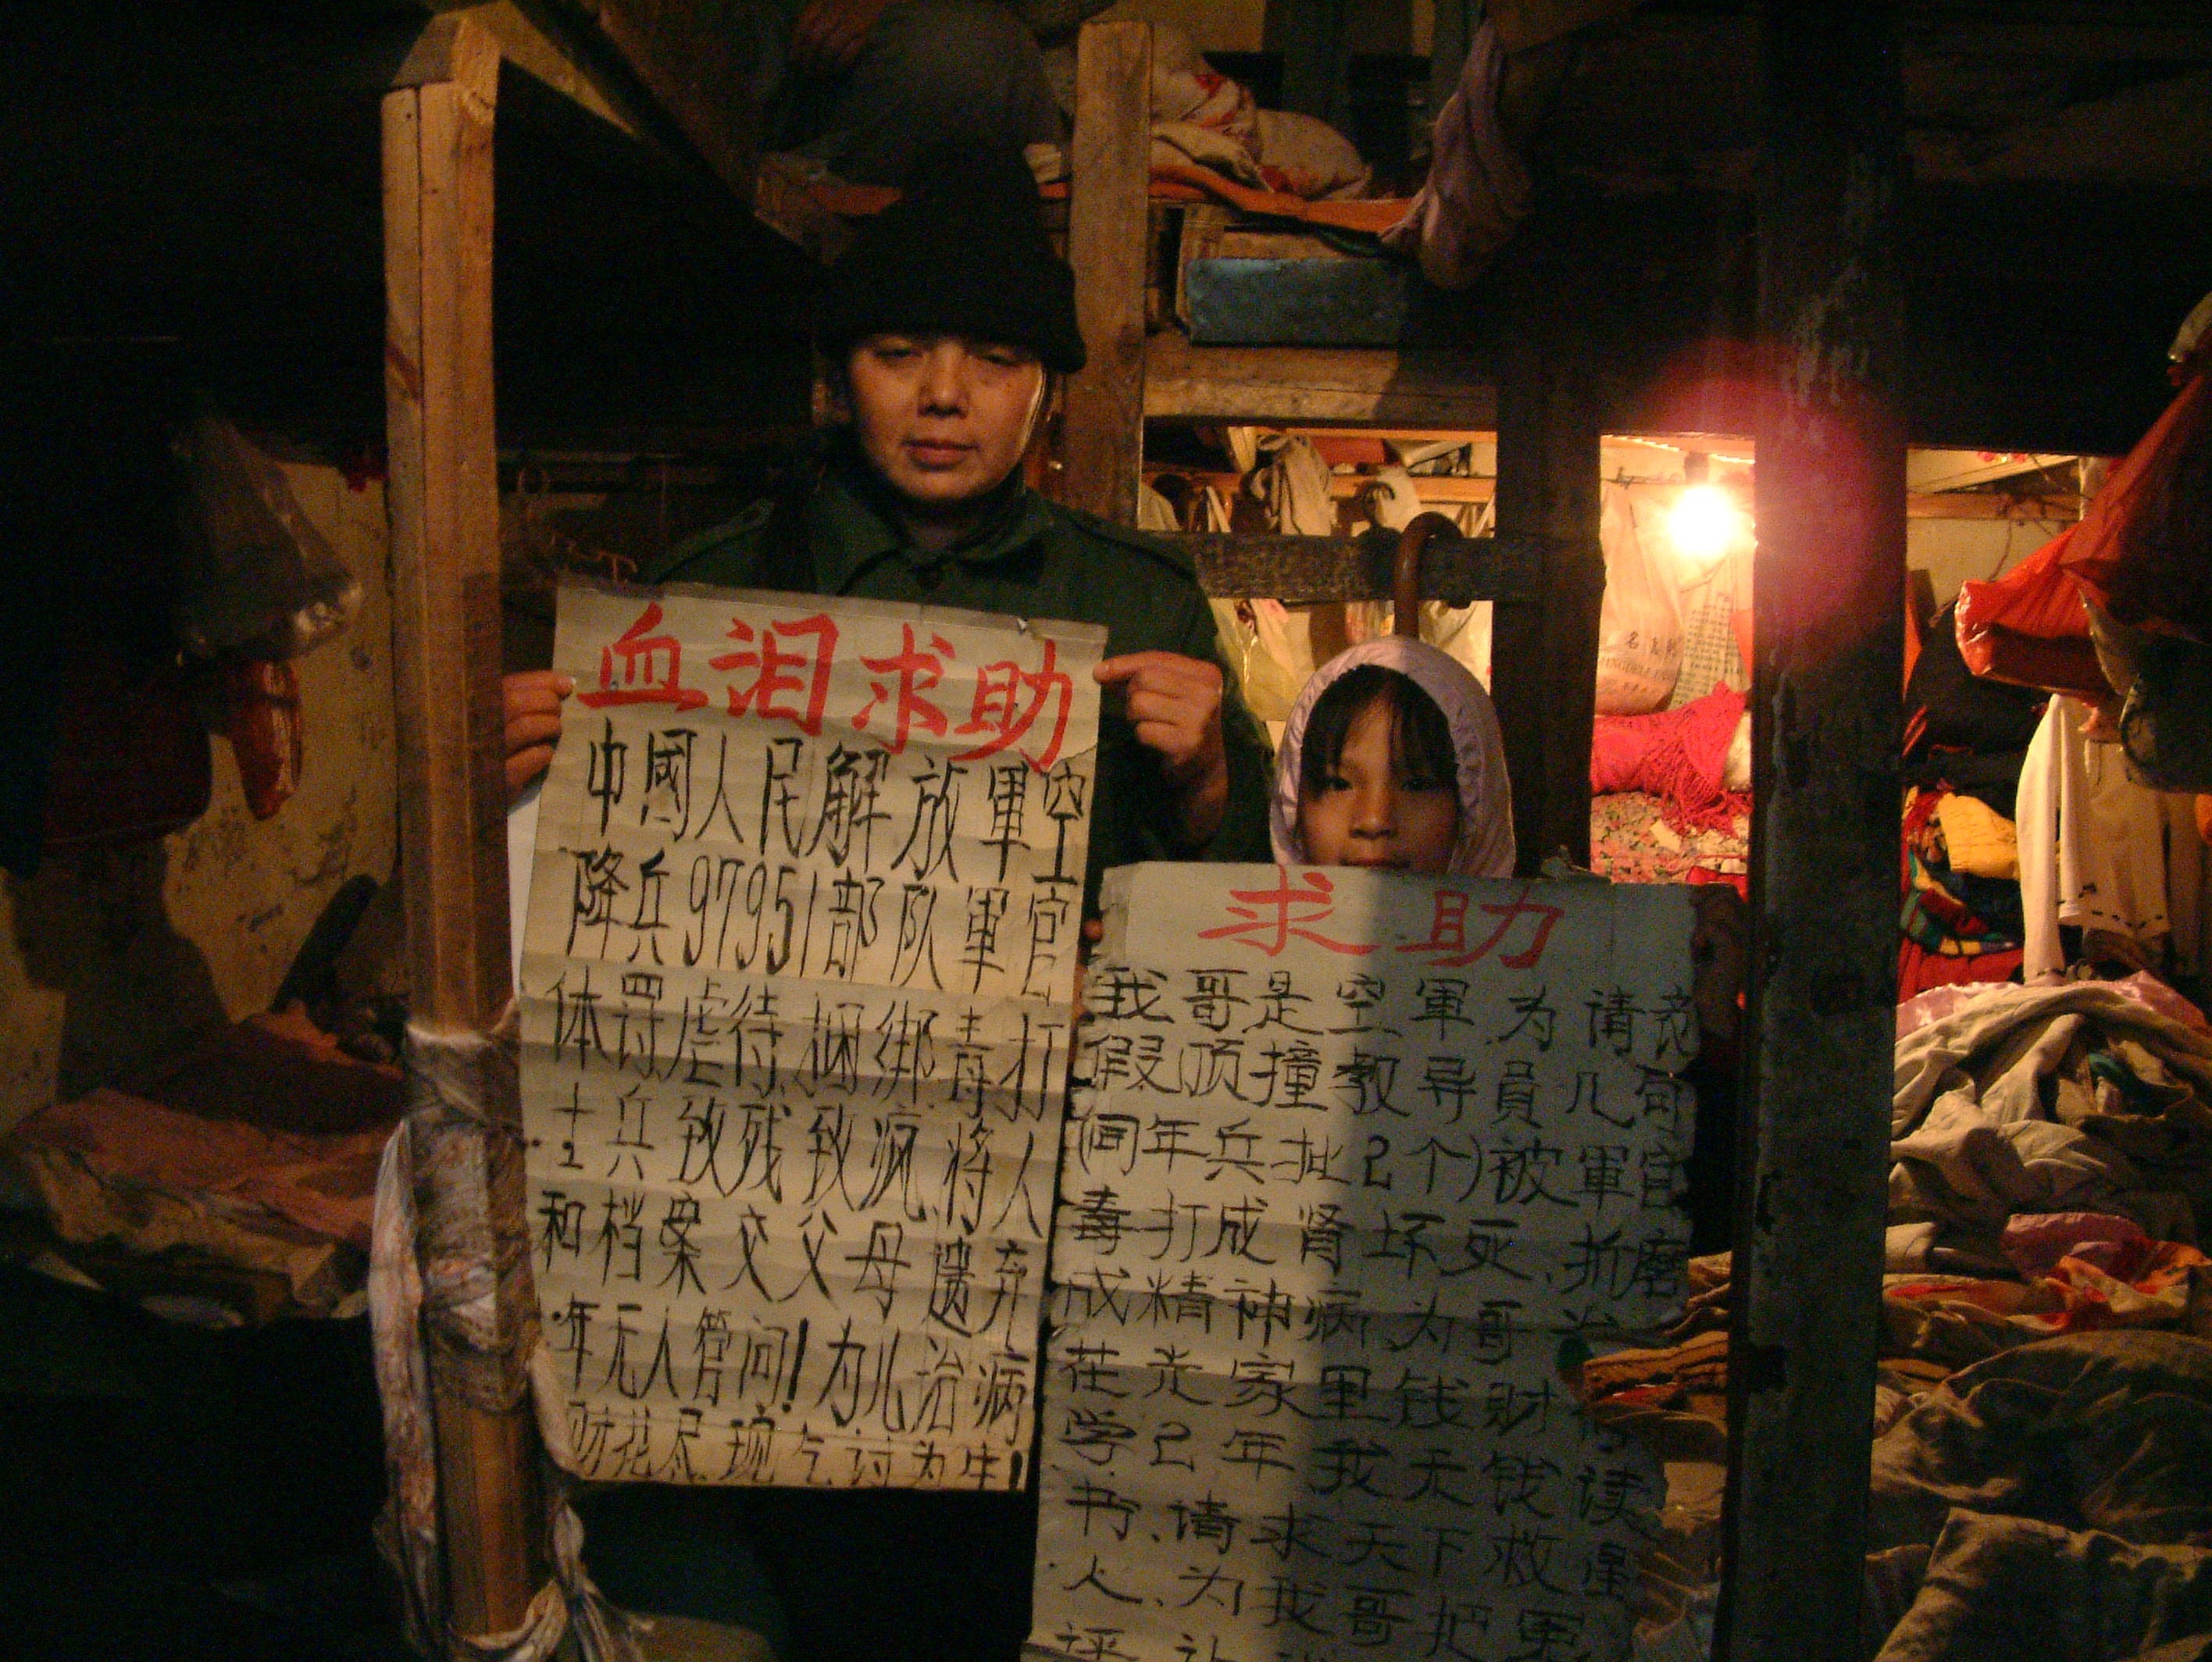 血泪求助
中國人民解放軍空
降兵97951部队軍官
体罚虐待.捆绑.毒打
士兵致残致疯.将人
和档案交父母遗弃
年无人管问!为儿治病
财花尽.现乞讨为生!
求助
我哥是空軍.为请
假顶撞教导員几句
(同年兵批2个)被軍官
毒打成肾坏死.折磨
成精神病.为哥治
光家里钱财
学2年我无钱读
书.请求天下救星
人.为我哥把軍
评 让